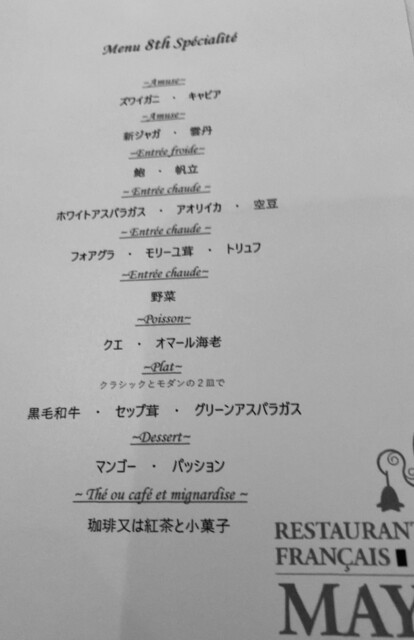 Menu 8th Spécialité
~Amuse~
ズワイガニ ・ キャビア
~Amuse~
新ジャガ ・ 雲丹
~Entrée froide~
鮑 ・ 帆立
~ Entrée chaude ~
ホワイトアスパラガス ・ アオリイカ ・ 空豆
~ Entrée chaude ~
フォアグラ ・ モリーユ茸 ・ トリュフ
~Entrée chaude~
野菜
~Poisson~
クエ ・ オマール海老
~Plat~
クラシックとモダンの2皿で
黒毛和牛 ・ セップ茸 ・ グリーンアスパラガス
~Dessert~
マンゴー ・ パッション
~ Thé ou café et mignardise ~
珈琲又は紅茶と小菓子
RESTAURANT
FRANÇAIS
MAY